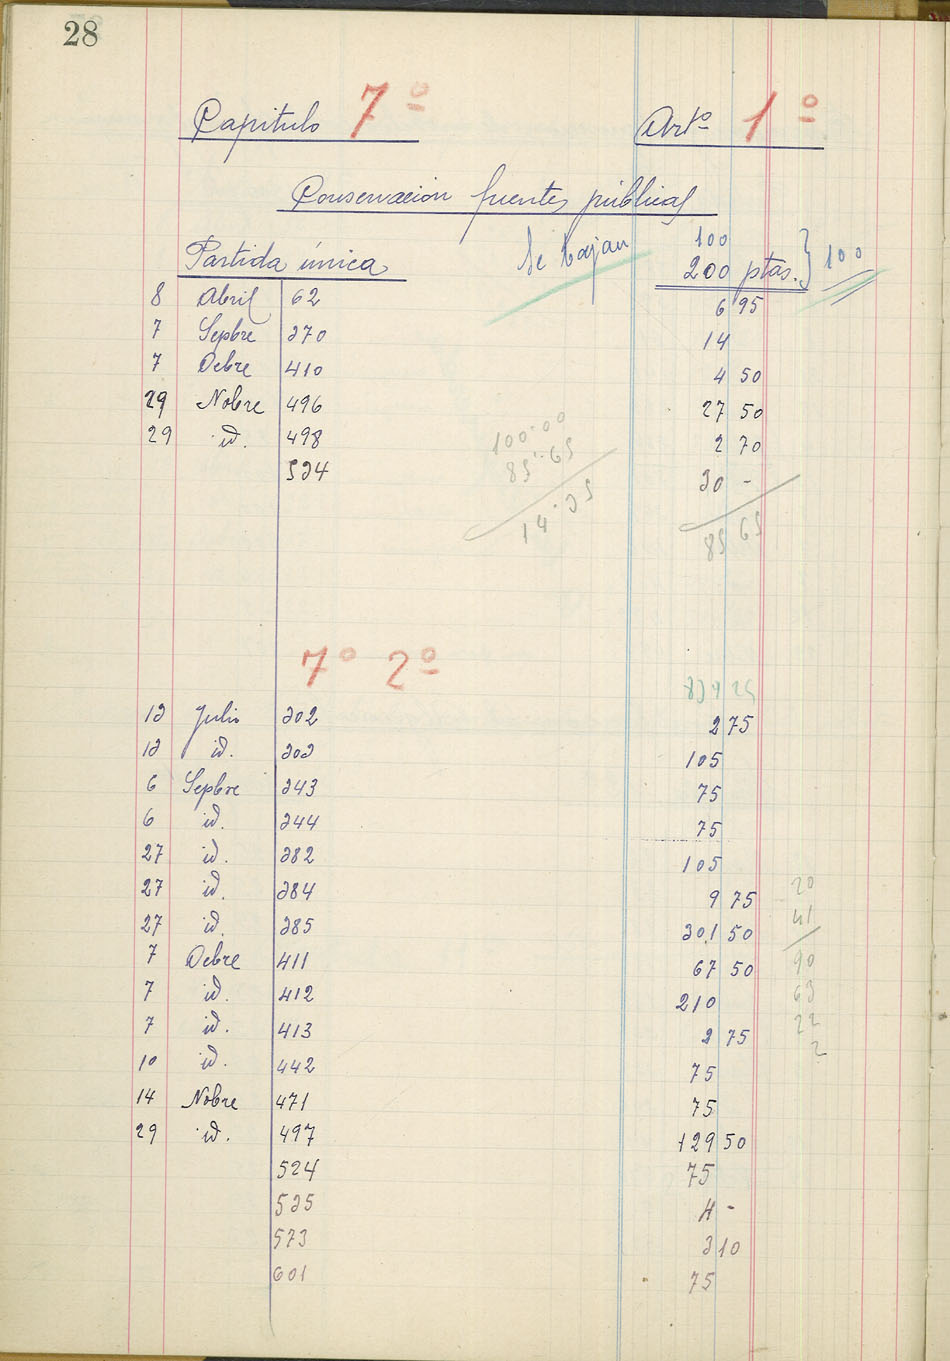 28
Capitulo 7º Artº 1º
Conservacion fuentes públicas
Se bajan 100
Partida única 200 ptas. } 100
8 Abril 62 6 95
7 Sepbre 270 14
7 Ocbre 410 4 50
29 Nobre 496 27 50
29 id. 498 2 70
524 30 -
100.00
85.65
14.35
85 65
7º 2º
12 Julio 202 2 75
12 id. 203 105
6 Sepbre 243 75
6 id. 244 75
27 id. 282 105
27 id. 284 9 75
27 id. 285 301 50
7 Ocbre 411 67 50
7 id. 412 210
7 id. 413 2 75
10 id. 442 75
14 Nobre 471 75
29 id. 497 129 50
524 75
525 4 -
573 3 10
601 75
20
41
90
63
22
2